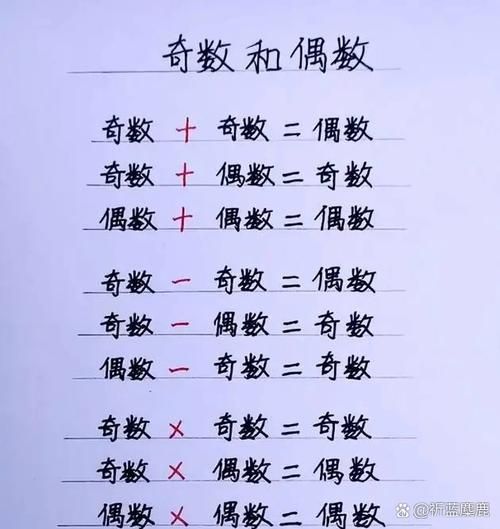 奇数和偶数
奇数 + 奇数 = 偶数
奇数 + 偶数 = 奇数
偶数 + 偶数 = 偶数
奇数 - 奇数 = 偶数
奇数 - 偶数 = 奇数
偶数 - 奇数 = 奇数
奇数 × 奇数 = 奇数
奇数 × 偶数 = 偶数
偶数 × 偶数 = 偶数
@祈蓝麋鹿